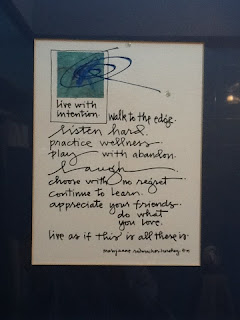 live with
intention.
walk to the edge.
listen hard.
practice wellness.
play with abandon.
laugh
choose with no regret.
continue to learn.
appreciate your friends.
do what
you love.
live as if this is all there is.
mary anne radmacher-hershey